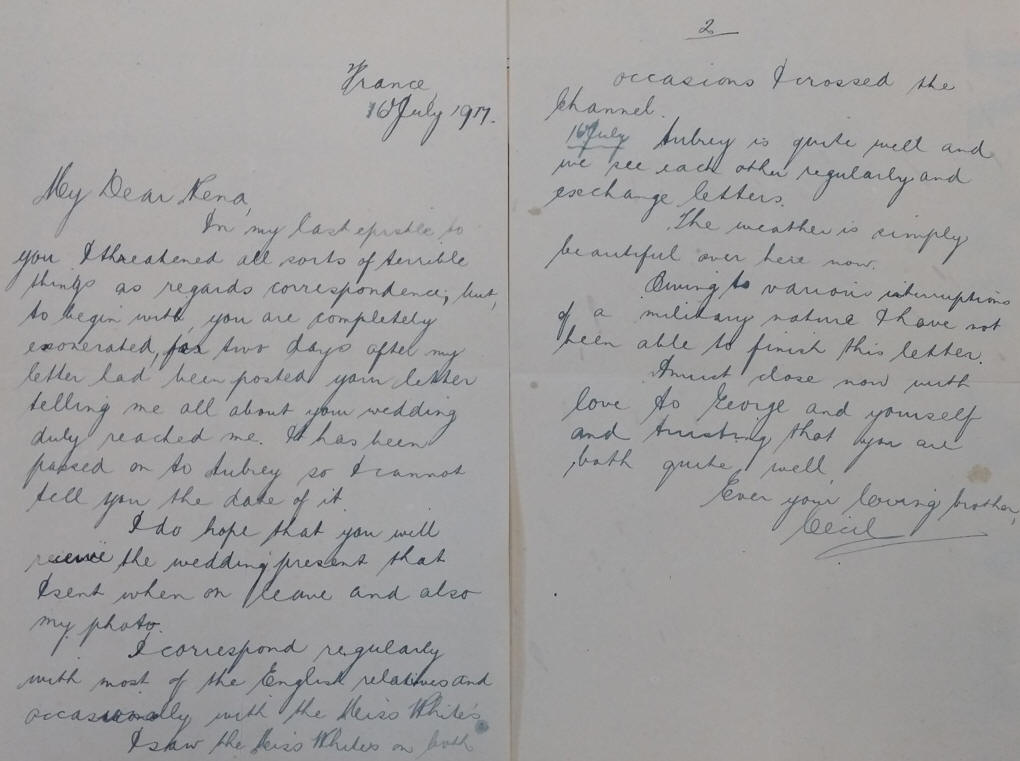 France,
16 July 1917.
My Dear Rena,
In my last epistle to
you I threatened all sorts of terrible
things as regards correspondence, but,
to begin with, you are completely
exonerated, for two days after my
letter had been posted your letter
telling me all about your wedding
duly reached me. It has been
passed on to Aubrey so I cannot
tell you the date of it.
I do hope that you will
receive the wedding present that
I sent when on leave and also
my photo.
I correspond regularly
with most of the English relatives and
occasionally with the Miss White's
I saw the Miss Whites on both
2
occasions I crossed the
Channel.
16 July Aubrey is quite well and
we see each other regularly and
exchange letters.
The weather is simply
beautiful over here now.
Owing to various interruptions
of a military nature I have not
been able to finish this letter.
I must close now with
love to George and yourself
and trusting that you are
both quite well
Ever your loving brother,
Cecil